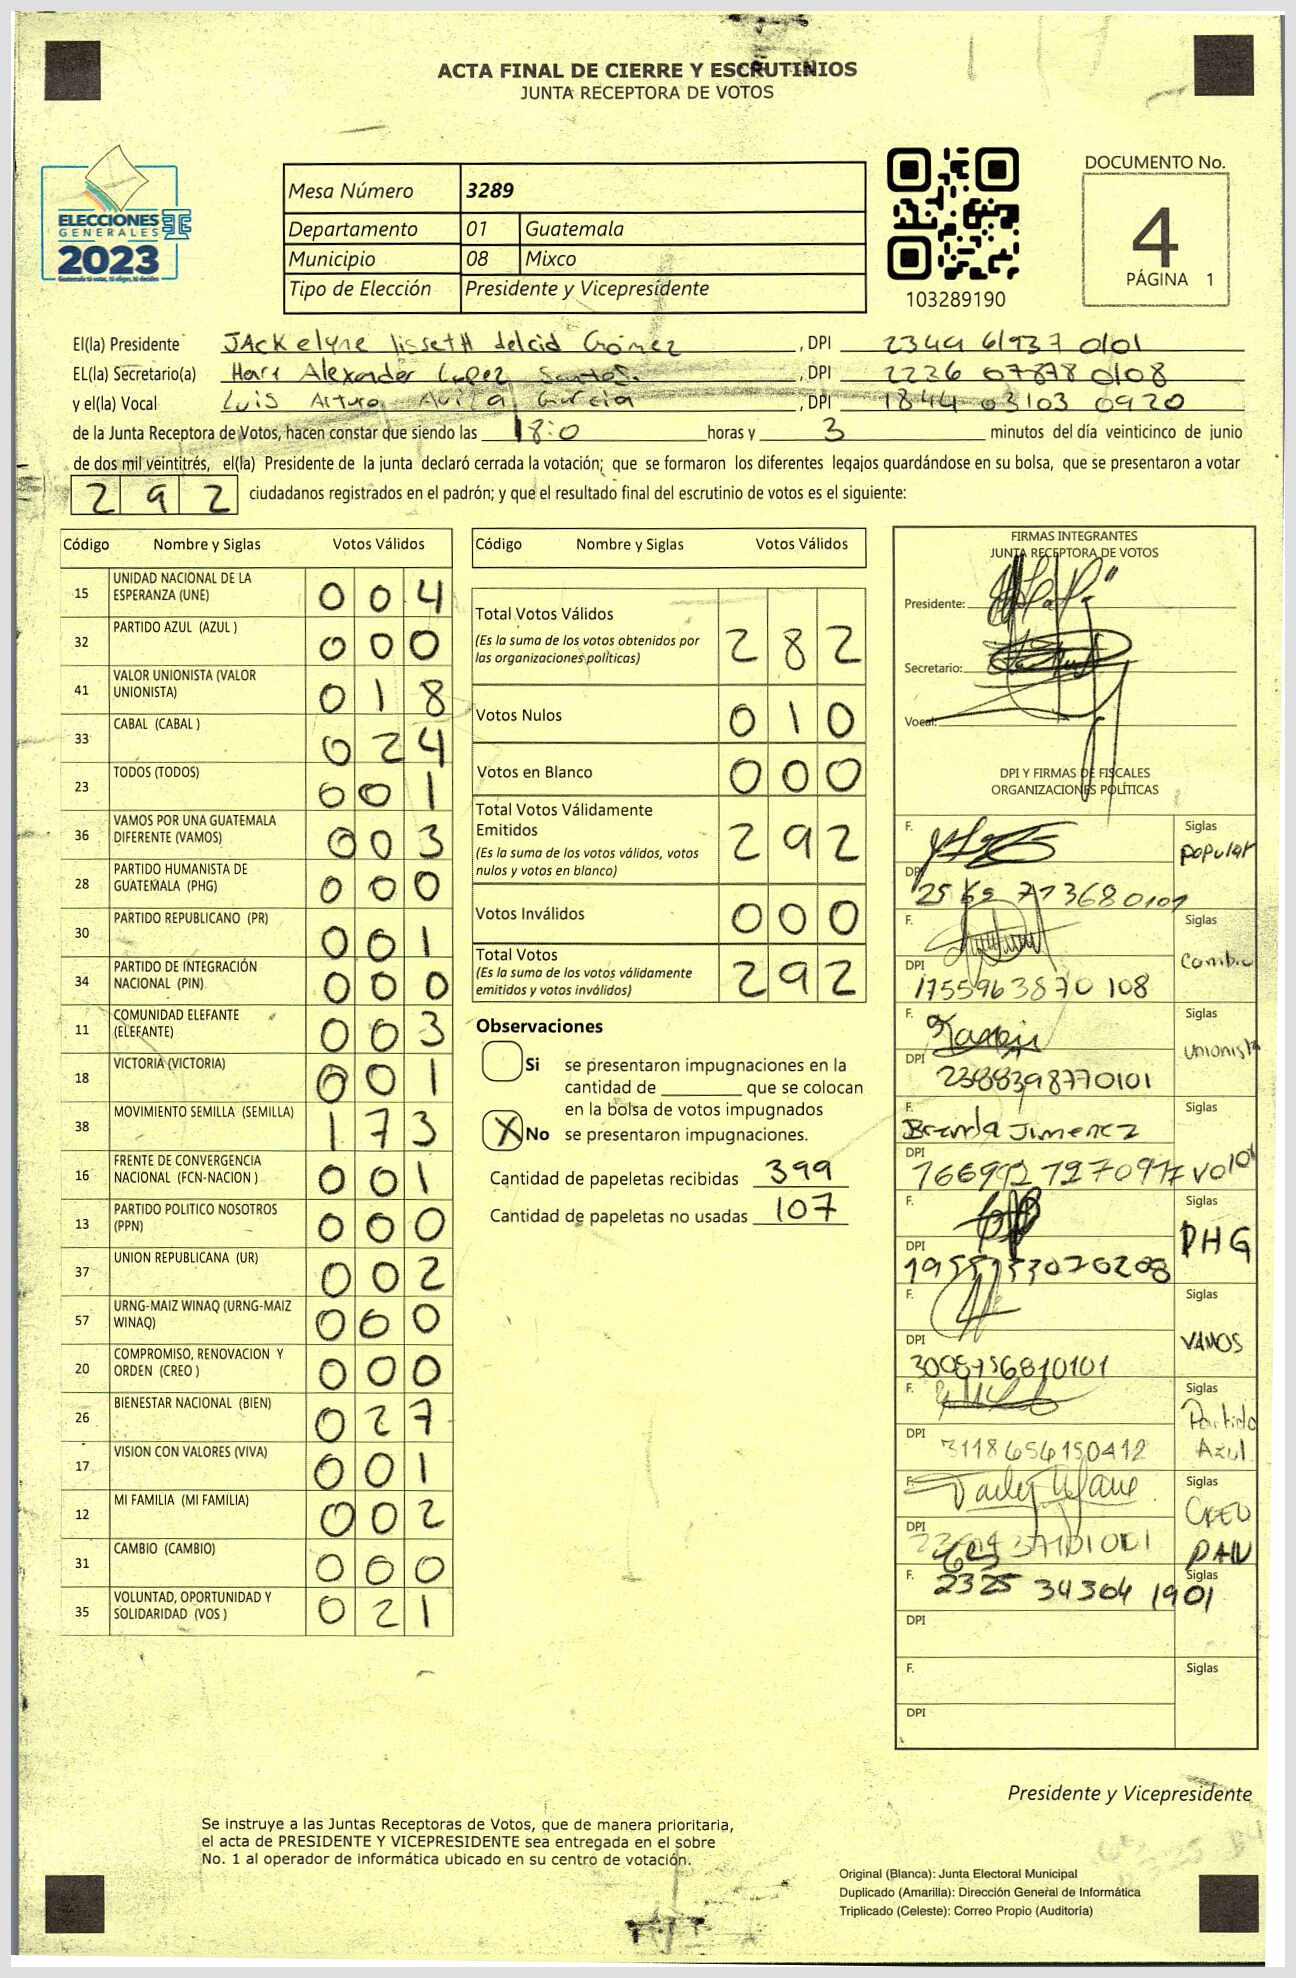 ACTA FINAL DE CIERRE Y ESCRUTINIOS
JUNTA RECEPTORA DE VOTOS
ELECCIONES
GENERALES
2023
Mesa Número 3289
Departamento 01 Guatemala
Municipio 08 Mixco
Tipo de Elección Presidente y Vicepresidente
103289190
DOCUMENTO No.
4
PÁGINA 1
El(la) Presidente JAckelyne lissetH delcid Gómez , DPI 2349 61937 0101
EL(la) Secretario(a) Alexander Lopez Santos. , DPI 2236 07878 0108
y el(la) Vocal Luis Arturo Avila Garcia , DPI 1844 03103 0920
de la Junta Receptora de Votos, hacen constar que siendo las 18:0 horas y 3 minutos del día veinticinco de junio
de dos mil veintitrés, el(la) Presidente de la junta declaró cerrada la votación; que se formaron los diferentes legajos guardándose en su bolsa, que se presentaron a votar
292 ciudadanos registrados en el padrón; y que el resultado final del escrutinio de votos es el siguiente:
Código Nombre y Siglas Votos Válidos
15 UNIDAD NACIONAL DE LA ESPERANZA (UNE) 004
32 PARTIDO AZUL (AZUL ) 000
41 VALOR UNIONISTA (VALOR UNIONISTA) 018
33 CABAL (CABAL ) 024
23 TODOS (TODOS) 001
36 VAMOS POR UNA GUATEMALA DIFERENTE (VAMOS) 003
28 PARTIDO HUMANISTA DE GUATEMALA (PHG) 000
30 PARTIDO REPUBLICANO (PR) 001
34 PARTIDO DE INTEGRACIÓN NACIONAL (PIN) 000
11 COMUNIDAD ELEFANTE (ELEFANTE) 003
18 VICTORIA (VICTORIA) 001
38 MOVIMIENTO SEMILLA (SEMILLA) 173
16 FRENTE DE CONVERGENCIA NACIONAL (FCN-NACION ) 001
13 PARTIDO POLITICO NOSOTROS (PPN) 000
37 UNION REPUBLICANA (UR) 002
57 URNG-MAIZ WINAQ (URNG-MAIZ WINAQ) 000
20 COMPROMISO, RENOVACION Y ORDEN (CREO ) 000
26 BIENESTAR NACIONAL (BIEN) 027
17 VISION CON VALORES (VIVA) 001
12 MI FAMILIA (MI FAMILIA) 002
31 CAMBIO (CAMBIO) 000
35 VOLUNTAD, OPORTUNIDAD Y SOLIDARIDAD (VOS ) 021
Código Nombre y Siglas Votos Válidos
Total Votos Válidos 282
(Es la suma de los votos obtenidos por
las organizaciones políticas)
Votos Nulos 010
Votos en Blanco 000
Total Votos Válidamente
Emitidos 292
(Es la suma de los votos válidos, votos
nulos y votos en blanco)
Votos Inválidos 000
Total Votos 292
(Es la suma de los votos válidamente
emitidos y votos inválidos)
Observaciones
Si se presentaron impugnaciones en la
cantidad de ________ que se colocan
en la bolsa de votos impugnados
X No se presentaron impugnaciones.
Cantidad de papeletas recibidas 399
Cantidad de papeletas no usadas 107
FIRMAS INTEGRANTES
JUNTA RECEPTORA DE VOTOS
Presidente:
Secretario:
Vocal:
DPI Y FIRMAS DE FISCALES
ORGANIZACIONES POLÍTICAS
F. Siglas popular
DPI
F. Siglas Cambio
DPI 1755963870 108
F. Siglas unionista
DPI 2388398770101
F. Brenda Jimenez Siglas
DPI
F. Siglas PHG
DPI
F. Siglas VAMOS
DPI 3008756810101
F. Siglas Partido Azul
DPI 3118656150412
F. Siglas CREO
DPI
F. 2325 34304 1901 Siglas
DPI
F. Siglas
DPI
Presidente y Vicepresidente
Se instruye a las Juntas Receptoras de Votos, que de manera prioritaria,
el acta de PRESIDENTE Y VICEPRESIDENTE sea entregada en el sobre
No. 1 al operador de informática ubicado en su centro de votación.
Original (Blanca): Junta Electoral Municipal
Duplicado (Amarilla): Dirección General de Informática
Triplicado (Celeste): Correo Propio (Auditoría)